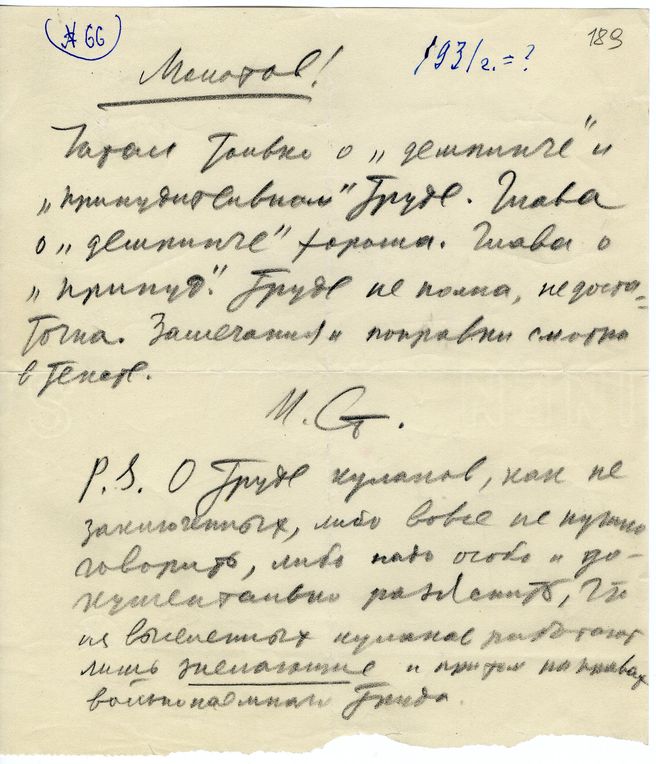 № 66
1931 г. = ?
189
Молотов!
Читал только о „демпинге" и
„принудительном" труде. Глава
о „демпинге" хороша. Глава о
„принуд." труде не полна, недоста-
точна. Замечания и поправки смотри
в тексте.
И. Ст.
P.S. О труде кулаков, как не
заключенных, либо вовсе не нужно
говорить, либо надо особо и до-
кументально разъяснить, что
из выселенных кулаков работают
лишь желающие и притом на правах
вольнонаемного труда.